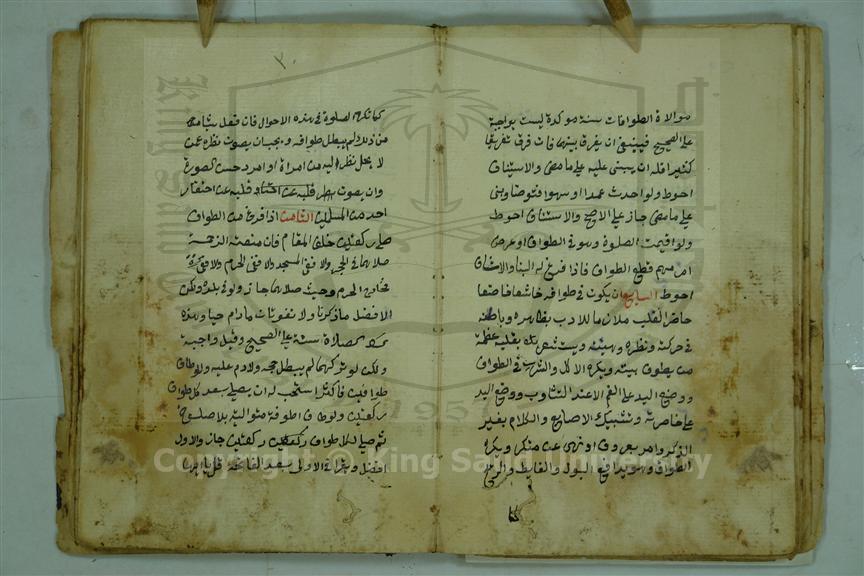 موالاة الطوافات سنة موكدة ليست بواجبة
على الصحيح فينبغي ان يفرق بينهما فان فرق تفريقا
كثيرا فله ان يبني عليه على ما مضى والاستئناف
احوط ولو احدث عمدا او سهوا فتوضا وبنى
على ما مضى جاز على الاصح والاستئناف احوط
ولو اقيمت الصلوة وهو في الطواف او عرض
امر مهم قطع الطواف فاذا فرغ له البنا والاستئناف
احوط السابع ان يكون في طوافه خاشعا خاضعا
حاضر القلب ملازما للادب بظاهره وباطنه
في حركته ونظره وهيئته ويستشعر بقلبه عظمة
من يطوف ببيته ويكره الاكل والشرب في الطواف
ووضع اليد على الفم الا عند التثاوب ووضع اليد
على خاصرته وتشبيك الاصابع والكلام بغير
الذكر وامر بمعروف او نهي عن منكر ويكره
الطواف وهو يدافع البول والغايط والريح
كما تكره الصلوة في هذه الاحوال فان فعل شيا
من ذلك لم يبطل طوافه ويجب ان يصون نظره عن
لا يحل نظر اليه من امراة او امرد حسن الصورة
وان يصون قلبه عن احتقار
احد من المسلمين الثامن اذا فرغ من الطواف
صلى ركعتين خلف المقام فان منعته الزحمة
صلاهما في الحجر والا ففي المسجد والا ففي الحرم والا
خارج الحرم وحيث صلاهما جاز ولو في بلده ولكن
الافضل ما ذكرنا ولا تفوتان ما دام حيا وهذه
الصلاة سنة على الصحيح وقيل واجبة
ولكن لو تركهما لم يبطل حجه ولا دم عليه ولو طاف
طوافين فاكثر استحب له ان يصلي بعد كل طواف
ركعتين ولو طاف اطوفة متوالية بلا صلوة
ثم صلى لكل طواف ركعتين جاز والاول
افضل ويقرا في الاولى بعد الفاتحة قل يا ايها
Copyright © King Saud University
1957